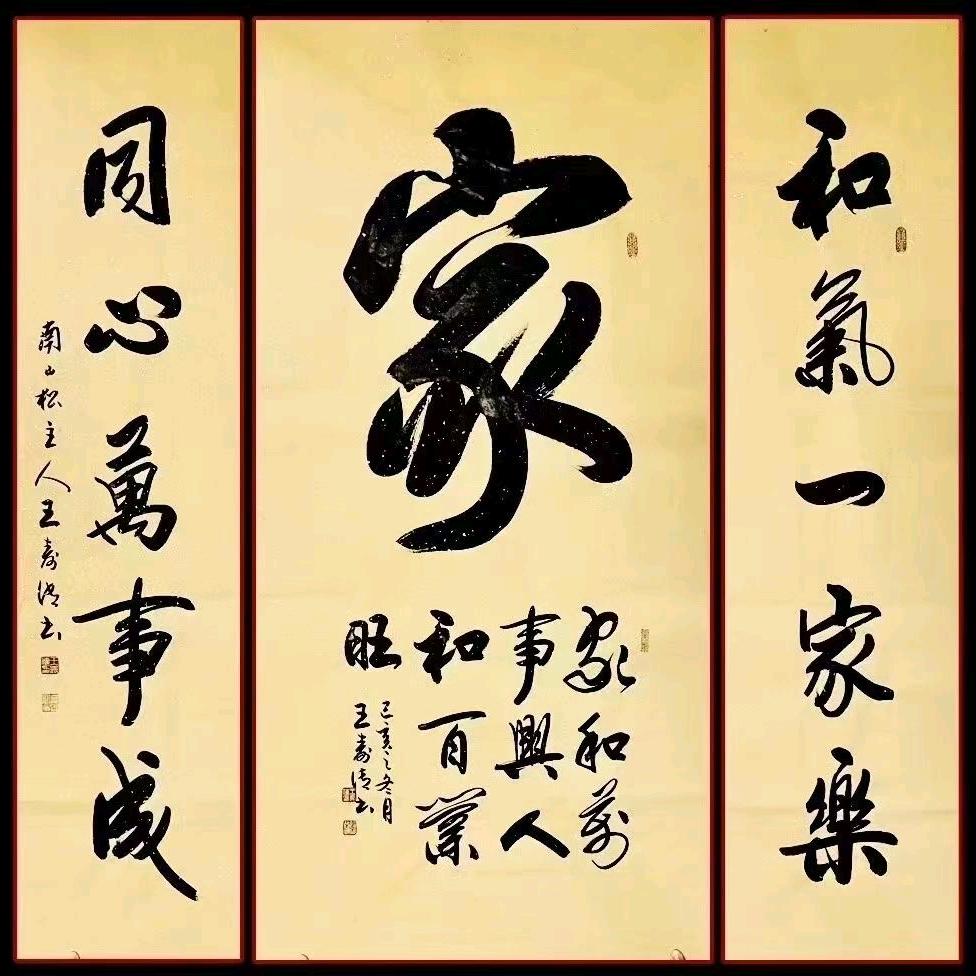 和氣一家樂
家
家和萬
事興人
和百業
旺
己亥之冬月
王壽清书
同心萬事成
南山松主人王壽清书